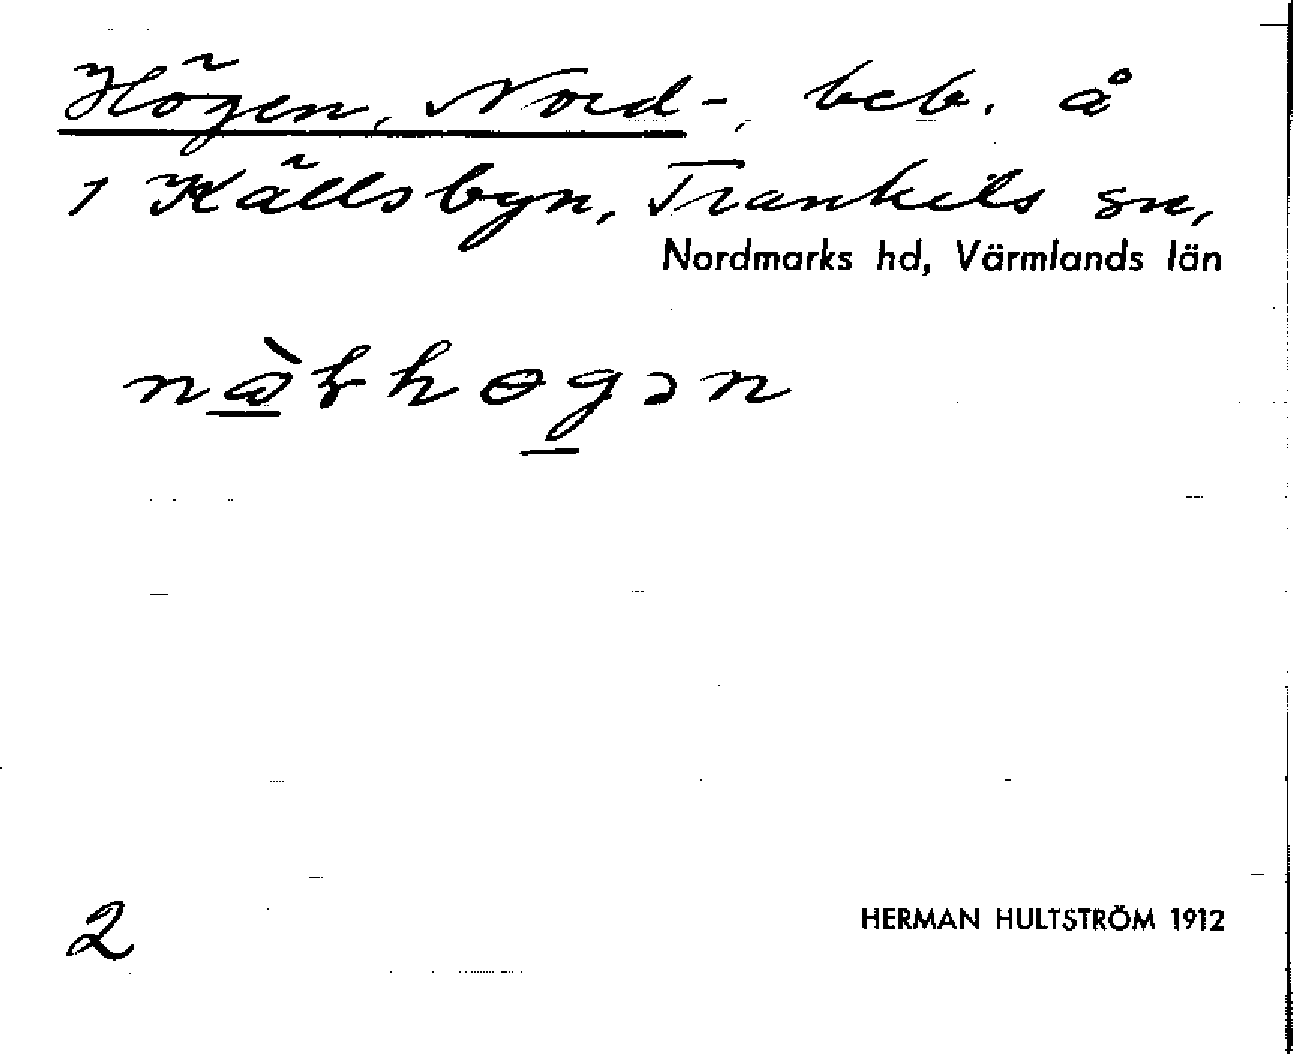 Högen, Nord-, beb. å
1 Källsbyn, Trankils sn,
Nordmarks hd, Värmlands län
2
HERMAN HULTSTRÖM 1912